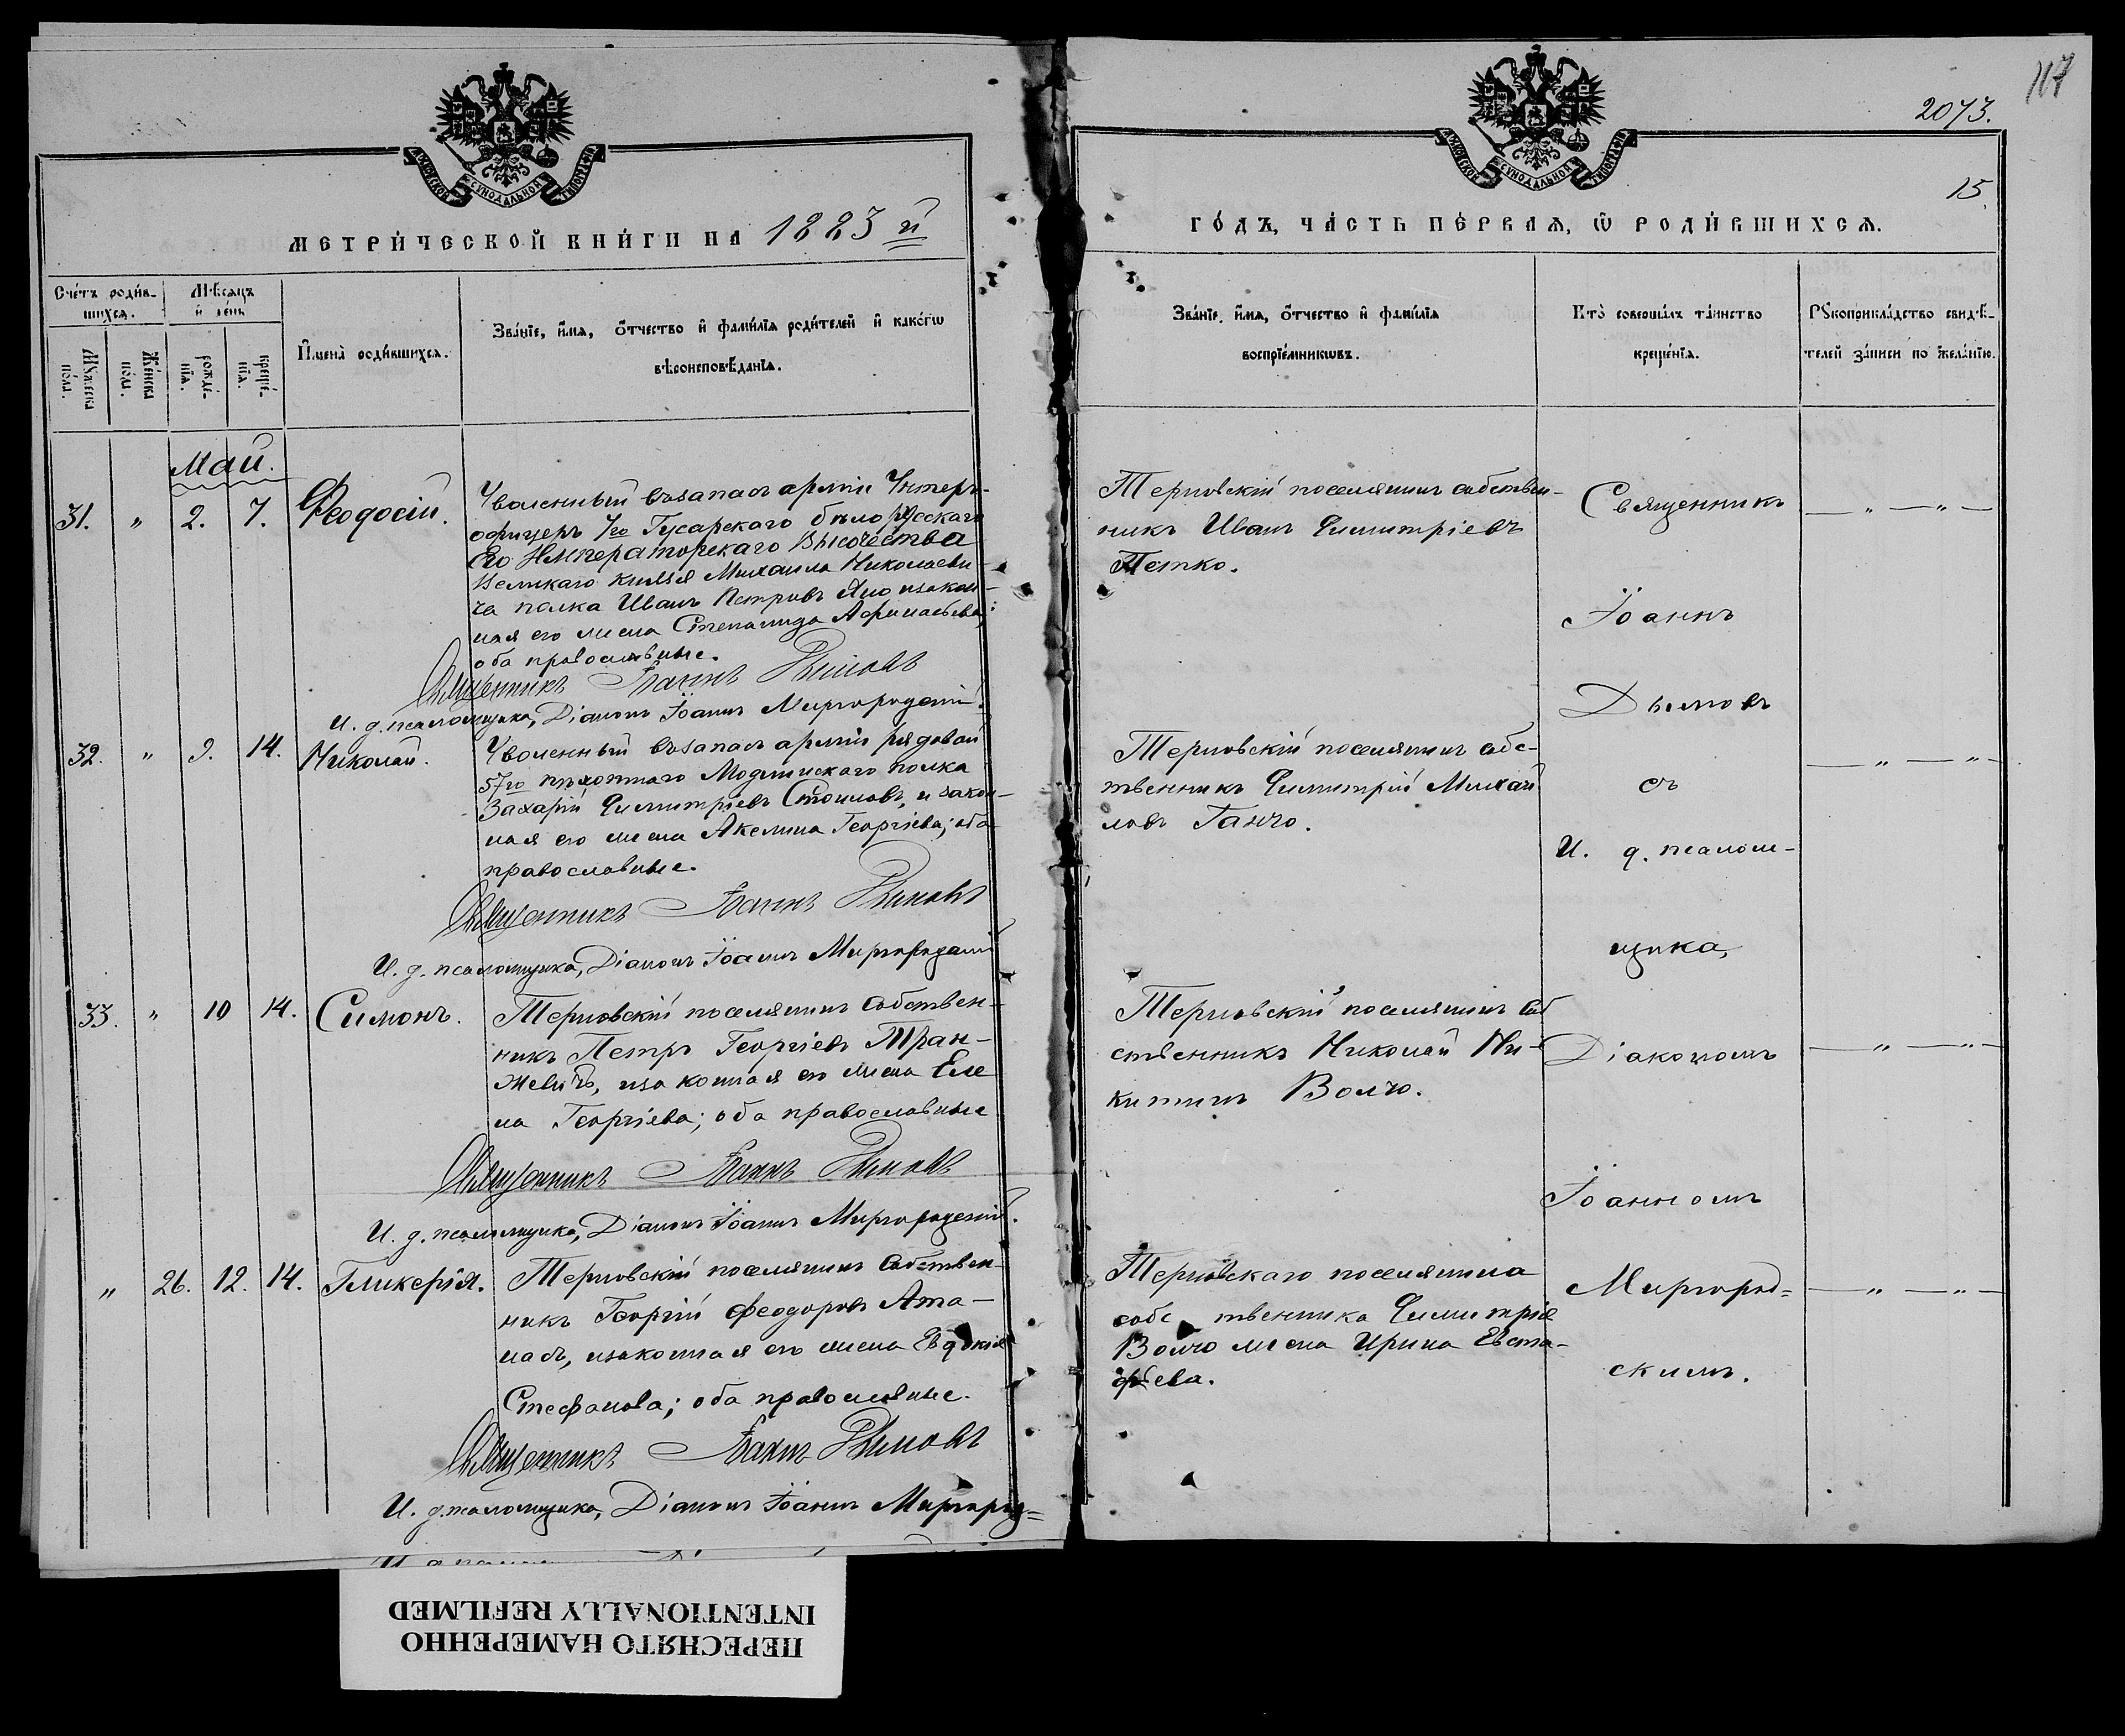 117
2073.
15.
КІЕВСКОЙ СУНОДАЛЬНОЙ ТИПОГРАФІИ
МЕТРИ́ЧЕСКОЙ КНИ́ГИ НА 1883 й
ГО́ДЪ, ЧА́СТЬ ПЕ́РВАЯ, Ѿ РОДИ́ВШИХСЯ.
Сче́тъ роди́в-
шихся.
Мѣсяцъ
и день
Мꙋжеска
пола.
Же́нска
пола.
рожде́-
нїя.
креще́-
нїя.
Имена̀ роди́вшихся.
Зва́нїе, и́мя, о́тчество и фами́лїя роди́телей и како́гѡ
вѣроисповѣданїя.
Зва́нїе, и́мя, о́тчество и фами́лїя
воспрїе́мникѡвъ.
Кто̀ соверша́лъ та́инство
креще́нїя.
Рꙋкоприкла́дство свидѣ-
телей за́писи по жела́нїю.
Май.
31. " 2. 7. Феодосій.
Уволенный въ запасъ арміи Унтеръ-
офицеръ 7го Гусарскаго бѣло русскаго
Его Императорскаго Высочества
Великаго князя Михаила Николаеви-
ча полка Иванъ Петровъ изакон-
ная его жена Степанида Афанасьева;
оба православные.
Священникъ Іоаннъ Дымовъ
И. д. псаломщика, Діаконъ Іоаннъ Миргородскій.
Терновскій поселянинъ собствен-
никъ Иванъ Димитріевъ
Петко.
Священникъ
Іоаннъ
Дымовъ
съ
И. д. псалом-
щика,
Діакономъ
Іоанномъ
Миргород=
скимъ.
32. " 9. 14. Николай.
Уволенный въ запасъ арміи рядовой
57го пѣхотнаго Модлинскаго полка
Захарій Димитріевъ Стоиловъ, и закон-
ная его жена Акелина Георгіева; оба
православные.
Священникъ Іоаннъ Дымовъ
И. д. псаломщика, Діаконъ Іоаннъ Миргородскій
Терновскій поселянинъ собс-
твенникъ Димитрій Михай
ловъ Ганчо.
33. " 10 14. Симонъ.
Терновскій поселянинъ собствен-
никъ Петръ Георгіевъ Тран-
жевичъ, изаконная его жена Еле
на Георгіева; оба православные
Священникъ Іоаннъ Дымовъ
И. д. псаломщика, Діаконъ Іоаннъ Миргородскій.
Терновскій поселянинъ соб
ственникъ Николай Ни-
китинъ Волчо.
" 26. 12. 14. Гликерія.
Терновскій поселянинъ собствен-
никъ Георгій Феодоровъ Ата-
насъ, изаконная его жена Евдокія
Стефанова; оба православные.
Священникъ Іоаннъ Дымовъ
И. д. псаломщика, Діаконъ Іоаннъ Миргород=
Терновскаго поселянина
собс твенника Димитрія
Волчо жена Ирина Евста-
фьева.
ПЕРЕСНЯТО НАМЕРЕННО
INTENTIONALLY REFILMED